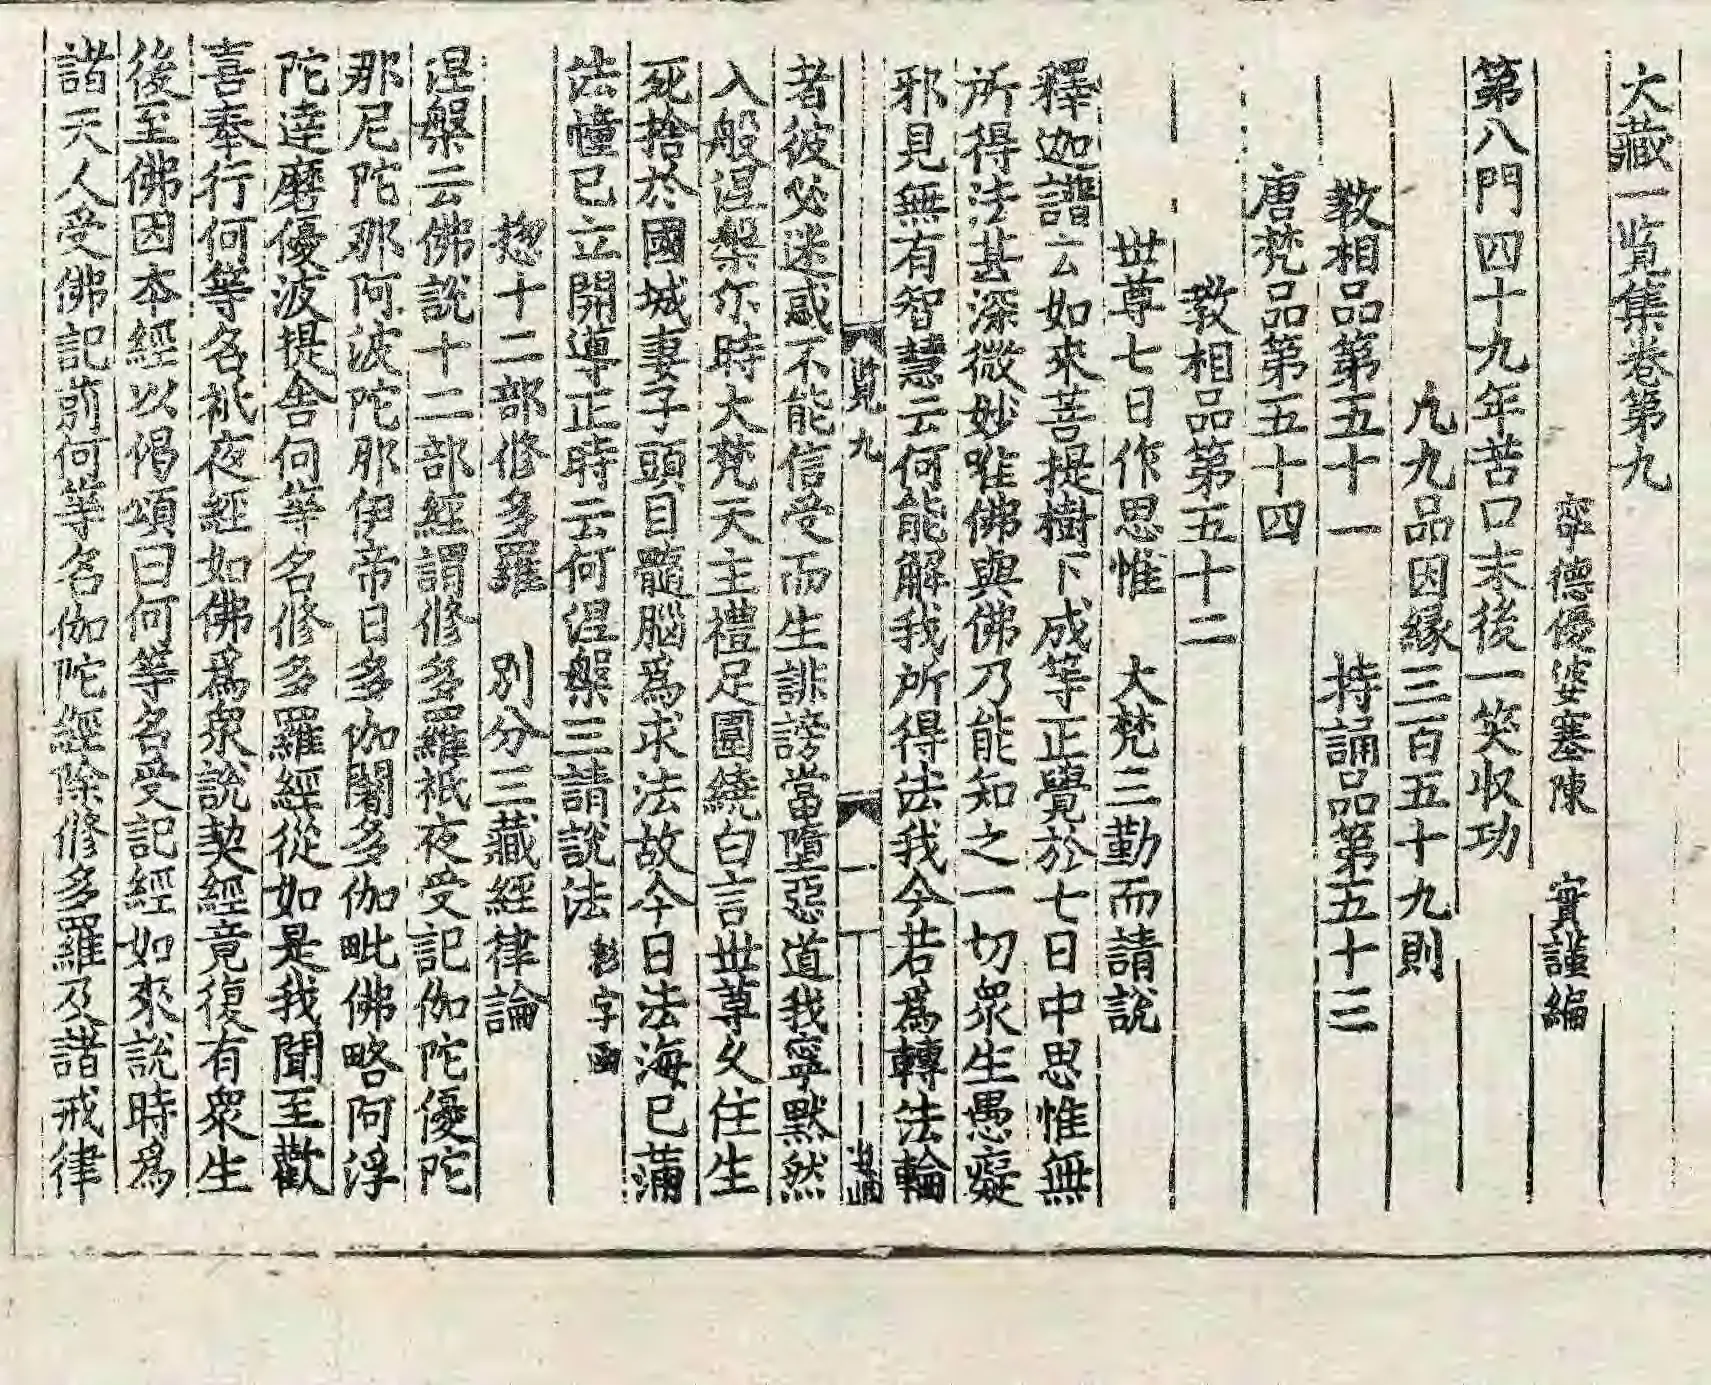 大藏一覧集卷第九
寧德優婆塞陳　實謹編
第八門四十九年苦口末後一笑収功
凡九品因縁三百五十九則
教相品第五十一　持誦品第五十三
唐梵品第五十四
教相品第五十二
世尊七日作思惟　大梵三勤而請說
釋迦譜云如來菩提樹下成等正覺於七日中思惟無
所得法甚深微妙唯佛與佛乃能知之一切衆生愚癡
邪見無有智慧云何能解我所得法我今若爲轉法輪
覧九　一
者彼必迷惑不能信受而生誹謗當墮惡道我寧默然
入般涅槃尓時大梵天主禮足圍繞白言世尊乆住生
死捨於國城妻子頭目髓腦爲求法故今日法海已滿
法幢已立開導正時云何涅槃三請說法 字函
惣十二部修多羅　別分三藏經律論
涅槃云佛說十二部經謂修多羅祇夜受記伽陀優陀
那尼陀那阿波陀那伊帝日多伽闍多伽毗佛略阿浮
陀達磨優波提舍何等名修多羅經從如是我聞至歡
喜奉行何等名祇夜經如佛爲衆說契經竟復有衆生
後至佛因本經以偈頌曰何等名受記經如來說時爲
諸天人受佛記莂何等名伽陀經除修多羅及諸戒律